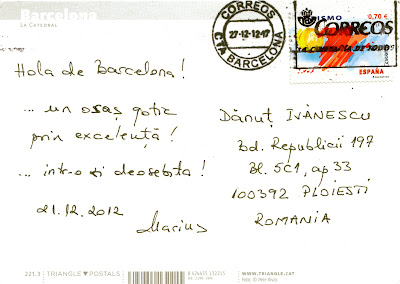 Barcelona
LA CATEDRAL
CORREOS
27-12-12
CTA BARCELONA
0,70 €
CORREOS
ESPAÑA
Hola de Barcelona!
... un oraș gotic
prin excelență!
... într-o zi deosebita!
21.12.2012
Marius
Dănuț IVĂNESCU
Bd. Republicii 197
Bl. 5C1, ap 33
100392 PLOIESTI
ROMANIA
221.3 TRIANGLE POSTALS
WWW.TRIANGLE.CAT